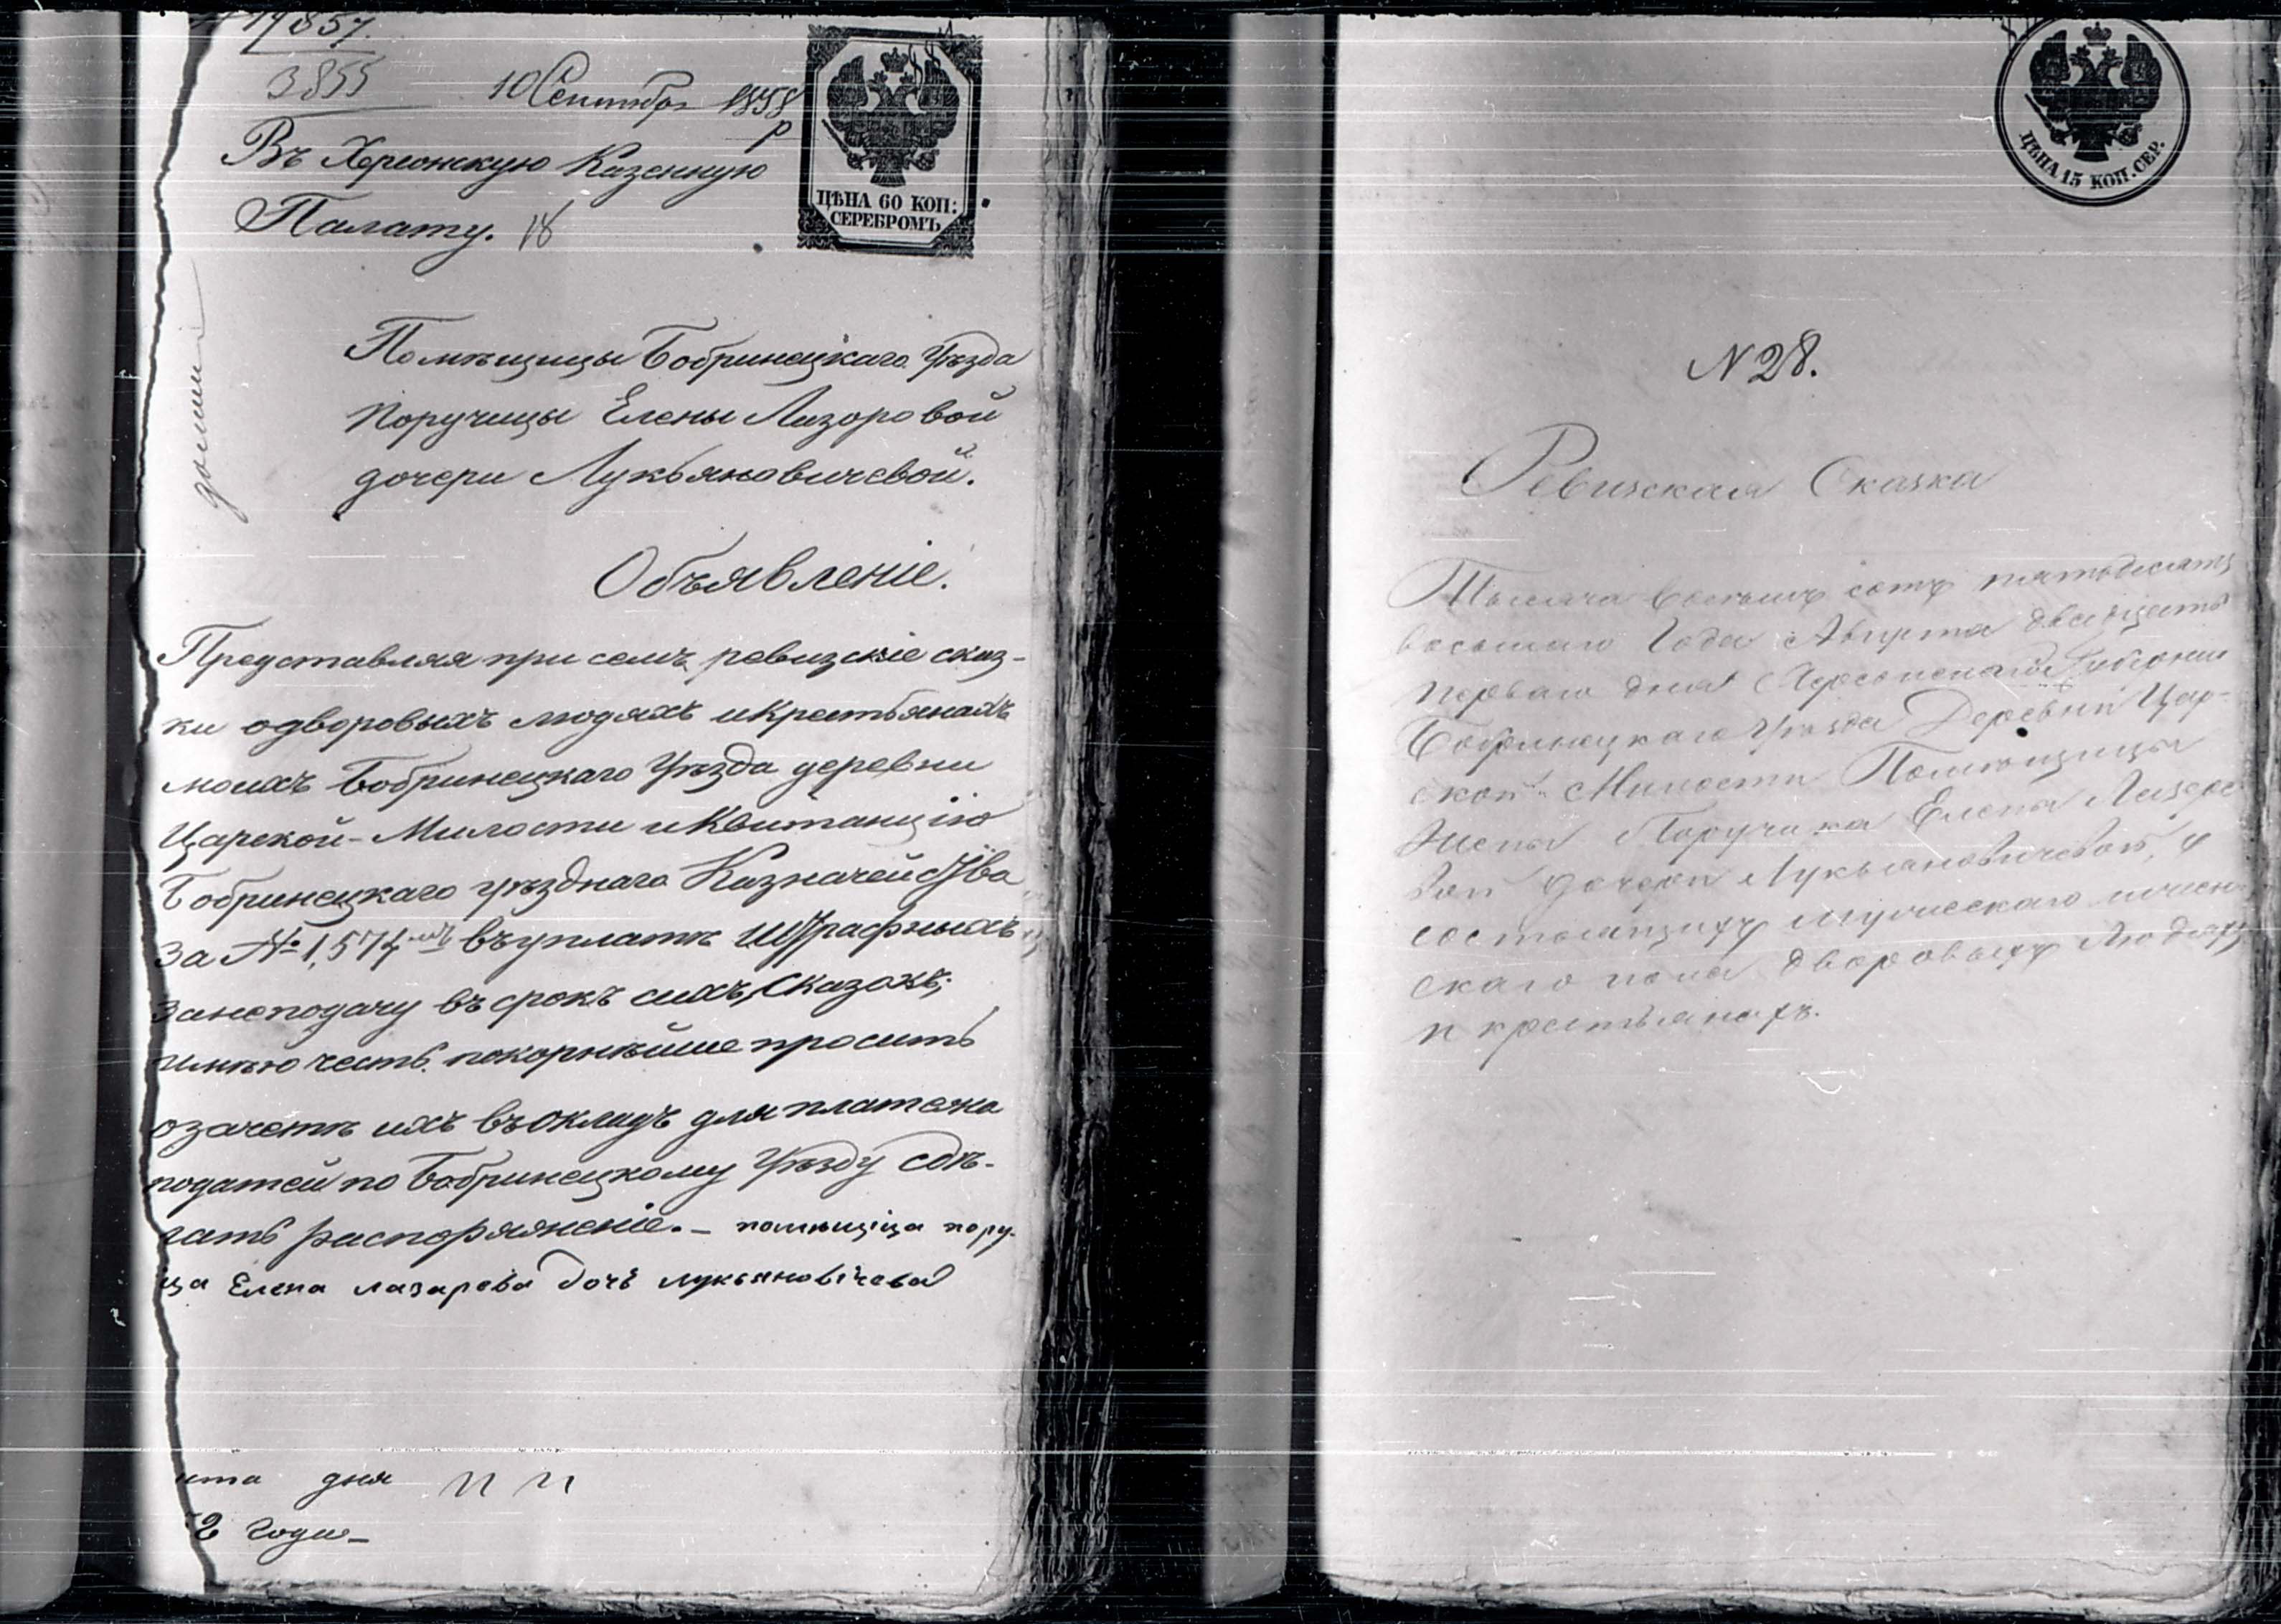 19857.
3855 10 Сентября 1858
Въ Херсонскую Казенную
Палату. 18
ЦѢНА 60 КОП:
СЕРЕБРОМЪ
Помѣщицы Бобринецкаго Уѣзда
Поручицы Елены Лазоровой
дочери Лукьяновичевой.
Объявленіе.
Представляя при семъ ревизскіе сказ-
ки одворовыхъ людяхъ икрестьянахъ
моихъ Бобринецкаго Уѣзда деревни
Царской-Милости иКвитанцію
Бобринецкаго уѣзднаго Казначейства
За № 1,574 въуплатѣ Штрафныхъ
занеподачу въ срокъ сихъ Сказокъ,
имѣю честь покорнѣйше просить
озачетѣ ихъ въокладъ для платежа
податей по Бобринецкому Уѣзду сдѣ-
лать распоряженіе.- помѣщіца пору-
ца Елена лазарева дочь лукьяновічева
дня
годи-
ЦѢНА 15 КОП. СЕР.
N 28.
Ревизская Сказка
Тысяча восемь сотъ пятьдесятъ
восьмаго года Августа двадцать
перваго дня Херсонской Губерніи
Бобринецкаго Уѣзда Деревни Цар-
ской Милости Помѣщицы
жены Поручика Елены Лазоро
вой дочери Лукьяновичевой, о
состоящихъ мужескаго иженс
скаго пола дворовыхъ людяхъ
и крестьянахъ.